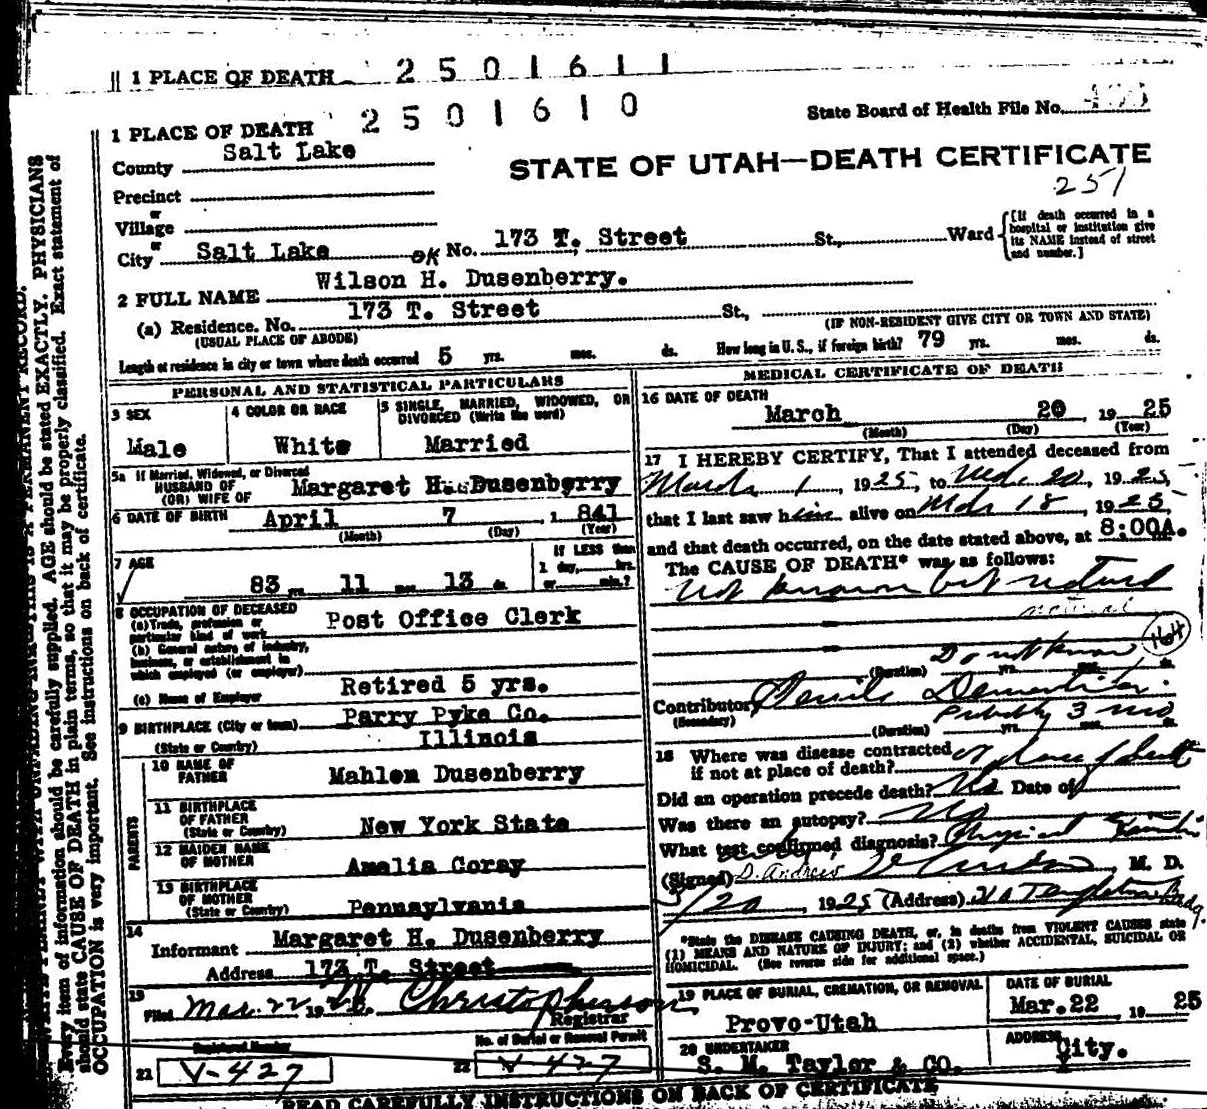 1 PLACE OF DEATH 2501611
1 PLACE OF DEATH 2501610
State Board of Health File No.
County Salt Lake
STATE OF UTAH—DEATH CERTIFICATE
251
Precinct
or
Village
or
City Salt Lake OK No. 173 T. Street St., Ward
[If death occurred in a hospital or institution give its NAME instead of street and number.]
2 FULL NAME Wilson H. Dusenberry.
(a) Residence. No. 173 T. Street St.,
(USUAL PLACE OF ABODE)
(IF NON-RESIDENT GIVE CITY OR TOWN AND STATE)
Length of residence in city or town where death occurred 5 yrs. mos. ds. How long in U. S., if foreign birth? 79 yrs. mos. ds.
PERSONAL AND STATISTICAL PARTICULARS
3 SEX
Male
4 COLOR OR RACE
White
5 SINGLE, MARRIED, WIDOWED, OR DIVORCED (Write the word)
Married
5a If Married, Widowed, or Divorced
HUSBAND OF
(OR) WIFE OF Margaret H. Dusenberry
6 DATE OF BIRTH April 7, 1841
(Month) (Day) (Year)
7 AGE
83 yrs. 11 mos. 13 ds.
If LESS than
1 day, hrs.
or min.?
8 OCCUPATION OF DECEASED
(a) Trade, profession or particular kind of work Post Office Clerk
(b) General nature of industry, business, or establishment in which employed (or employer)
(c) Name of Employer Retired 5 yrs.
9 BIRTHPLACE (City or town) Parry Pyke Co.
(State or Country) Illinois
PARENTS
10 NAME OF FATHER Mahlon Dusenberry
11 BIRTHPLACE OF FATHER
(State or Country) New York State
12 MAIDEN NAME OF MOTHER Amelia Coray
13 BIRTHPLACE OF MOTHER
(State or Country) Pennsylvania
14
Informant Margaret H. Dusenberry
Address 173 T. Street
15
Filed Mar. 22, 1925. Christopherson
Registrar
Registered Number
No. of Burial or Removal Permit
21 V-427
22 V-427
MEDICAL CERTIFICATE OF DEATH
16 DATE OF DEATH
March 20 1925
(Month) (Day) (Year)
17 I HEREBY CERTIFY, That I attended deceased from
March 1, 1925, to Mch. 20, 1925,
that I last saw him alive on Mch 18, 1925,
and that death occurred, on the date stated above, at 8:00A.
The CAUSE OF DEATH* was as follows:
Not known but natural
natural
164
Do not know
(Duration) yrs. mos. ds.
Contributory Senile Dementia.
(Secondary)
Probably 3 mos
(Duration) yrs. mos. ds.
18 Where was disease contracted
if not at place of death? At place of death
Did an operation precede death? No Date of
Was there an autopsy? No
What test confirmed diagnosis? Physical
(Signed) D. Andrew, M. D.
3/20, 1925 (Address) Templeton Bldg.
*State the DISEASE CAUSING DEATH, or, in deaths from VIOLENT CAUSES state
(1) MEANS AND NATURE OF INJURY; and (2) whether ACCIDENTAL, SUICIDAL OR
HOMICIDAL. (See reverse side for additional space.)
19 PLACE OF BURIAL, CREMATION, OR REMOVAL
Provo-Utah
DATE OF BURIAL
Mar.22 1925
20 UNDERTAKER
S. M. Taylor & CO.
ADDRESS
City.
READ CAREFULLY INSTRUCTIONS ON BACK OF CERTIFICATE
Every item of information should be carefully supplied. AGE should be stated EXACTLY. PHYSICIANS
should state CAUSE OF DEATH in plain terms, so that it may be properly classified. Exact statement of
OCCUPATION is very important. See instructions on back of certificate.